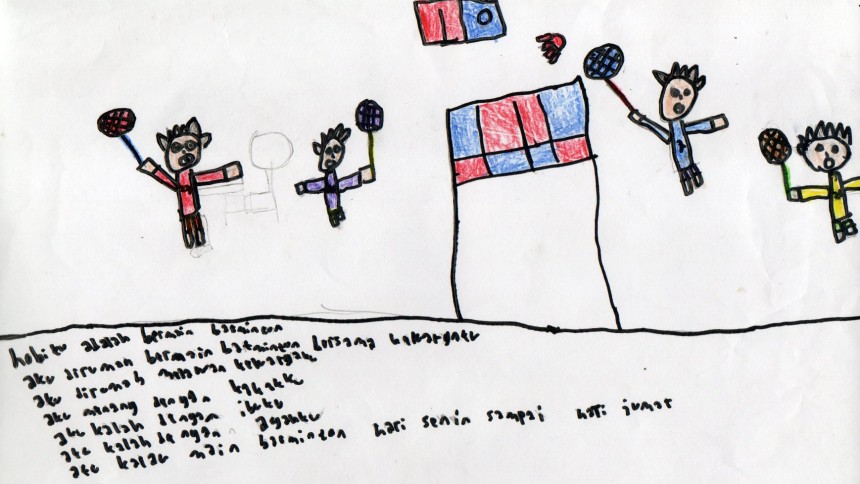 hobiku adalah bermain basminton
aku dirumah bermain batminton bersama keluargaku
aku dirumah melawan keluargaku
aku menang dengan kakakku
aku kalah dengan ibuku
aku kalah dengan ayahku
aku kalau main basminton hari senin sampai hari jumat